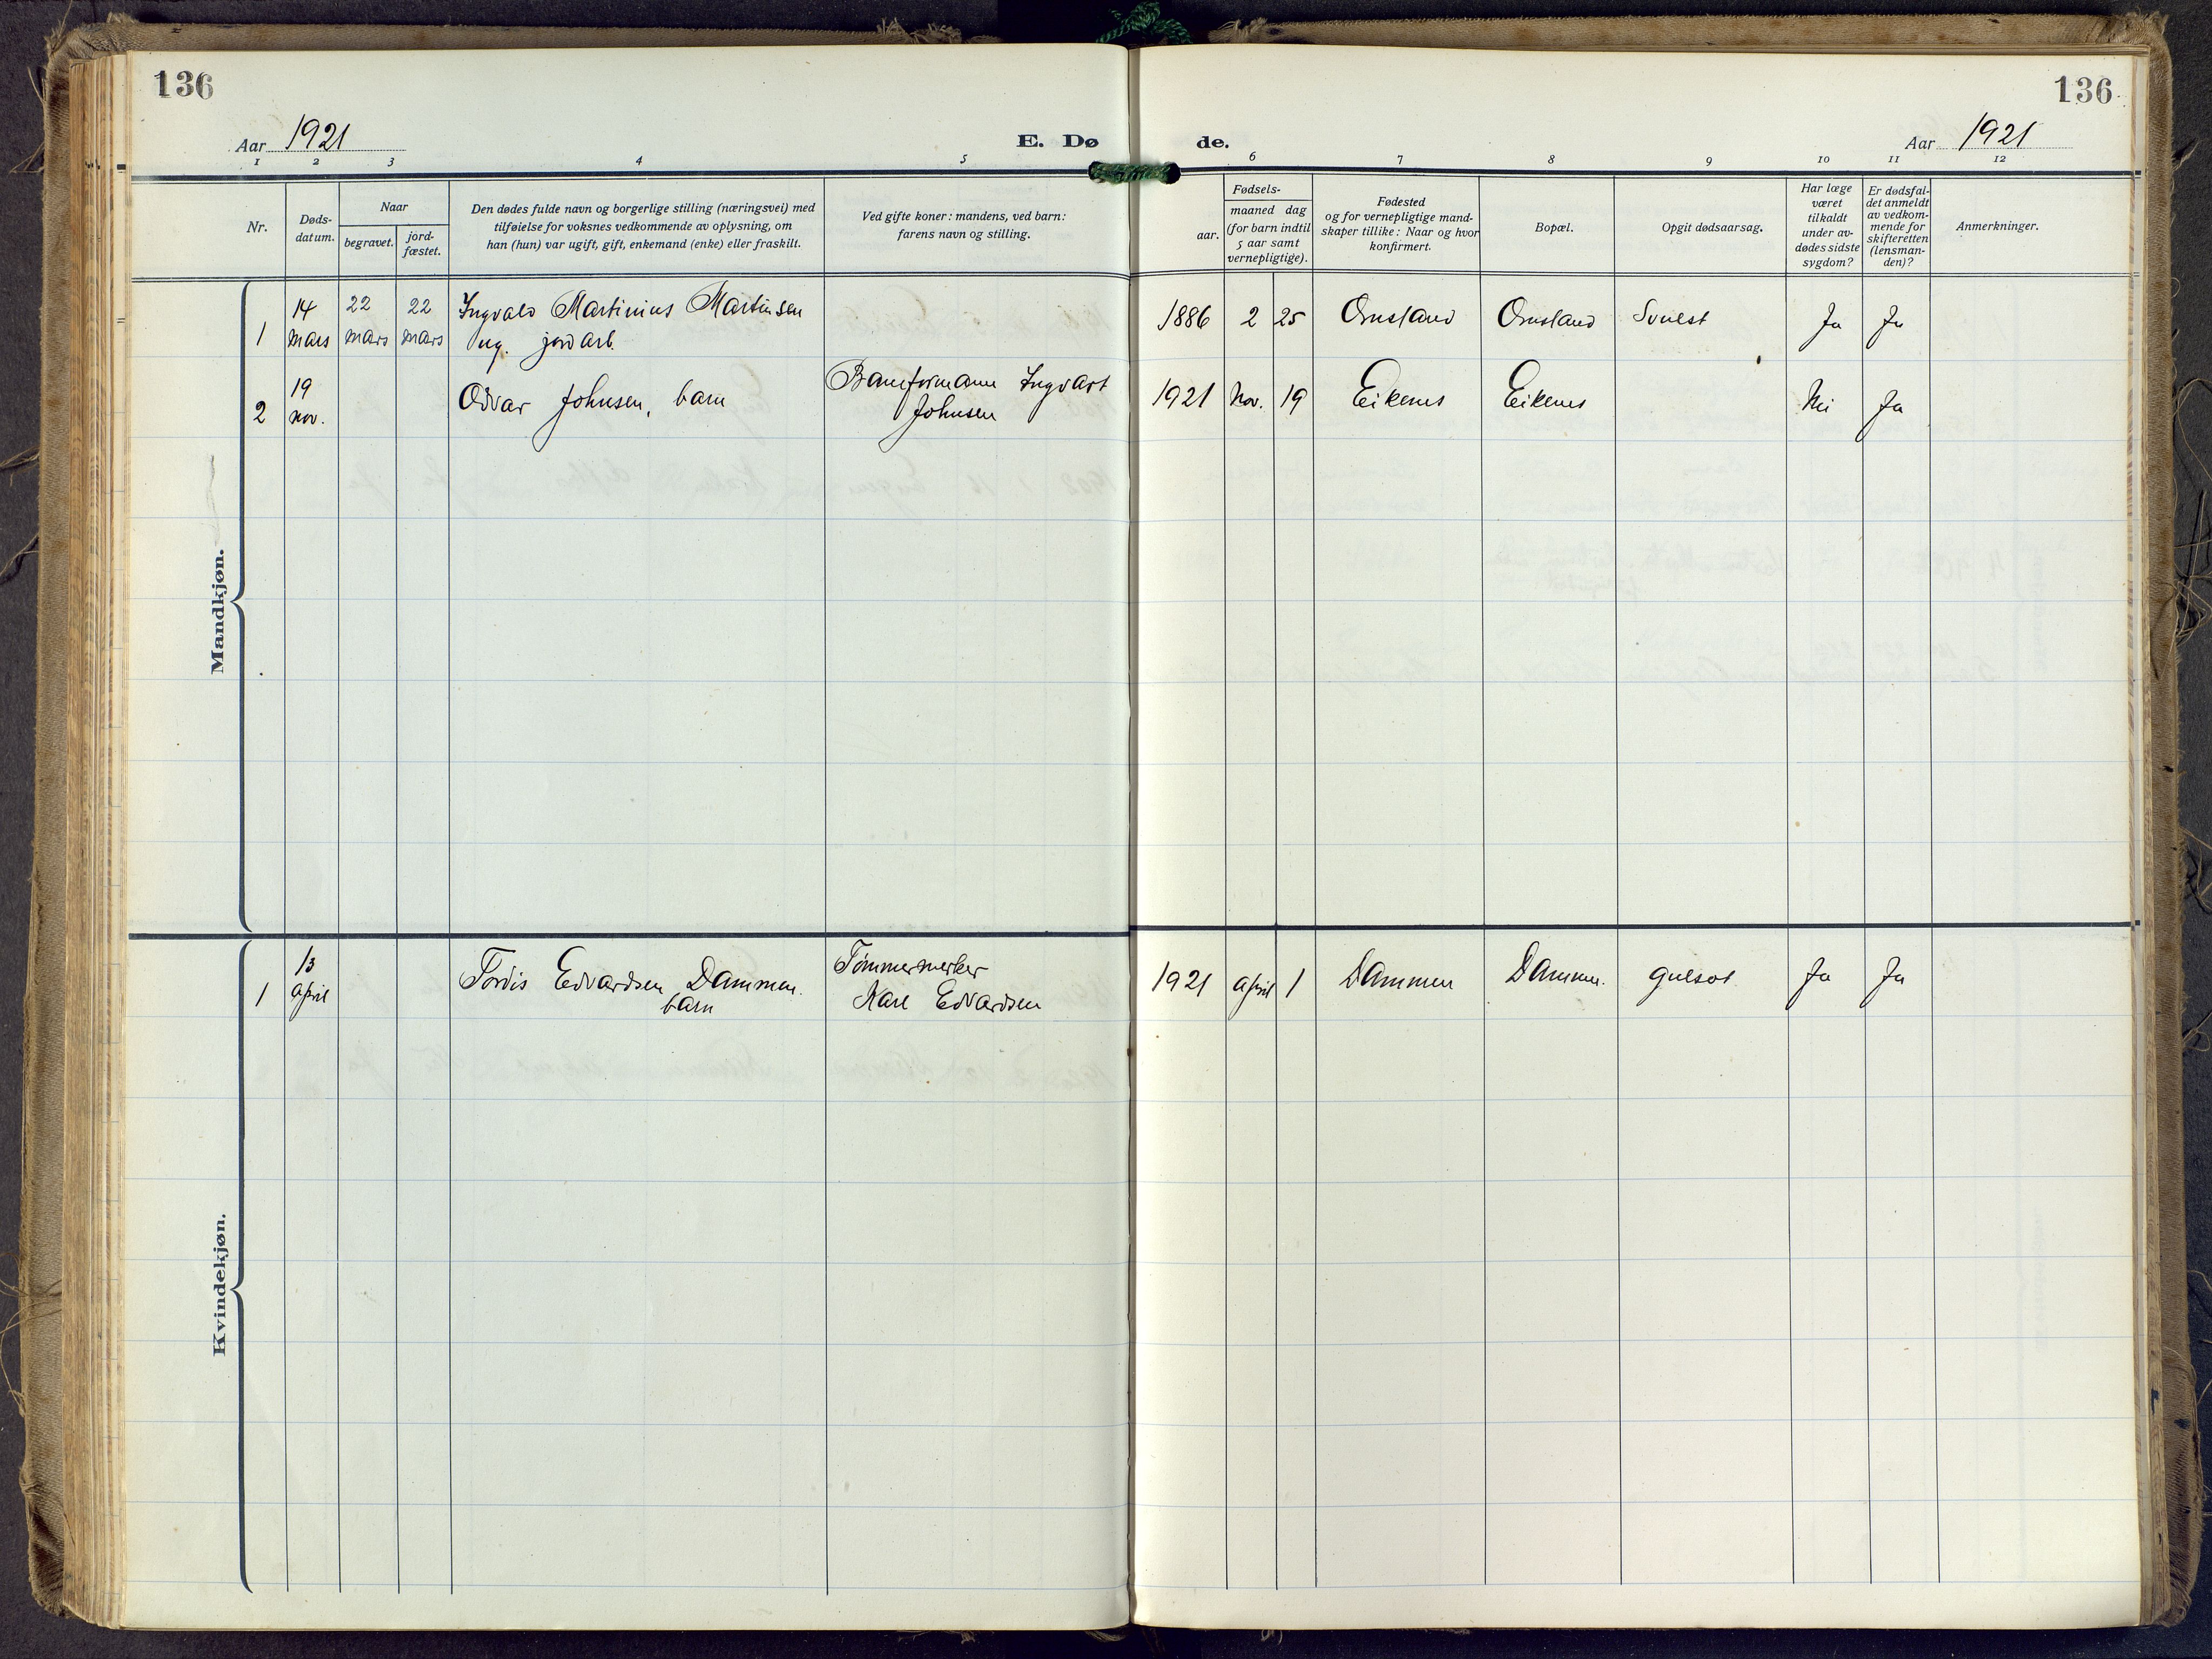 136
136
Aar 1921
E. Dø de.
Aar 1921
1 2 3 4 5 6 7 8 9 10 11 12
Nr.
Døds-
datum.
Naar
begravet.
jord-
fæstet.
Den dødes fulde navn og borgerlige stilling (næringsvei) med
tilføielse for voksnes vedkommende av oplysning, om
han (hun) var ugift, gift, enkemand (enke) eller fraskilt.
Ved gifte koner: mandens, ved barn:
farens navn og stilling.
Fødsels-
aar.
maaned dag
(for barn indtil
5 aar samt
vernepligtige).
Fødested
og for vernepligtige mand-
skaper tillike: Naar og hvor
konfirmert.
Bopæl.
Opgit dødsaarsag.
Har læge
været
tilkaldt
under av-
dødes sidste
sygdom?
Er dødsfal-
det anmeldt
av vedkom-
mende for
skifteretten
(lensman-
den)?
Anmerkninger.
Mandkjøn.
14 22 22 Ingvald Martinius Martinsen
1 mars mars mars ug. jordarb. 1886 2 25 Onsland Onsland Ja Ja
19 Baneformann Ingvart
2 nov. Odvar Johnsen, barn Johnsen 1921 Nov. 19 Eikenes Eikenes Nei Ja
Kvindekjøn.
13 Tordis Edvardsen Dammen. Tømmermerker
1 april barn Karl Edvardsen 1921 April 1 Dammen Dammen. gulsot Ja Ja